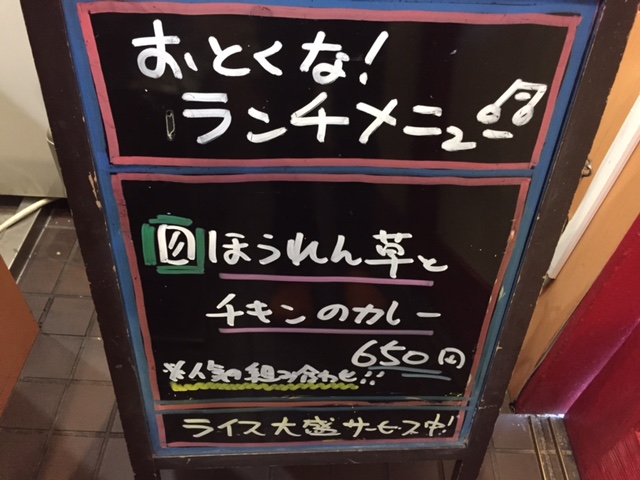 おトクな!
ランチメニュー
回ほうれん草と
チキンのカレー
650円
※人気の組み合わせ!!
ライス大盛サービス中!